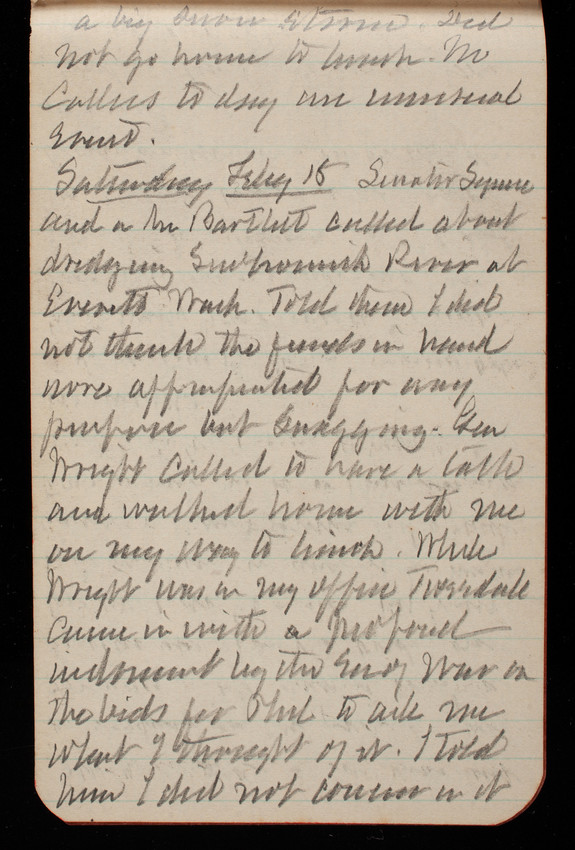 a big snow storm. Did
not go home to lunch. No
Callers to day an unusual
Event.
Saturday Feby 15 Senator Squire
and a Mr Bartlett called about
dredging Snohomish River at
Everett Wash. Told them I did
not think the funds in hand
were appropriated for any
purpose but Snagging. Gen
Wright called to have a talk
and walked home with me
on my way to lunch. While
Wright was in my office Truesdale
came in with a proposed
indorsement by the Sec of War on
the bids for Phil to ask me
what I thought of it. I told
him I did not concur in it